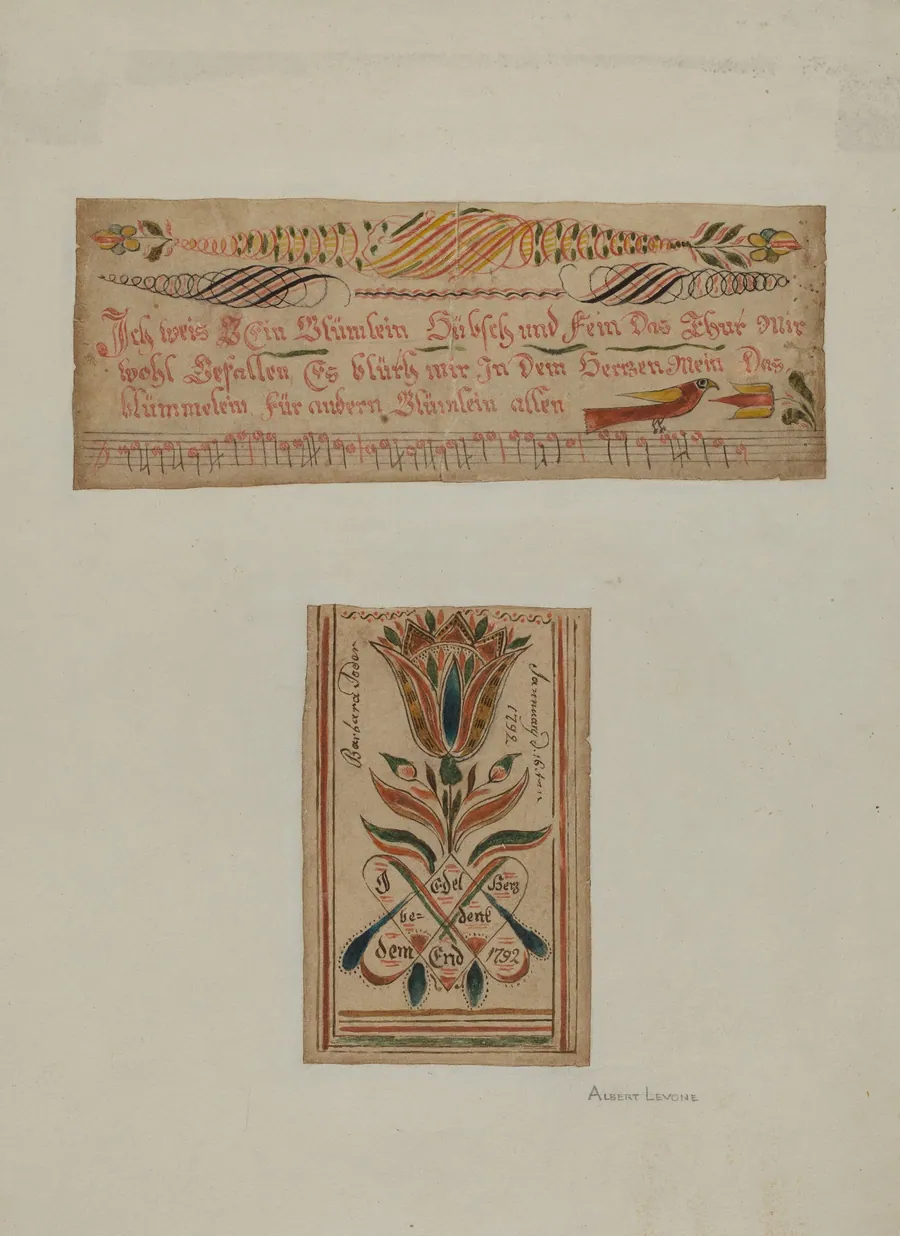 Ich weis Ein Blümlein Hübsch und Fein Das Thut Mir
wohl Gefallen Es blüth mir In Dem Herzen Mein Das
blümmelein Für andern Blümlein allen
Barbara Joder
Jannuary D. 16.
1792
O Edel Herz
be= denk
dem End 1792
ALBERT LEVONE